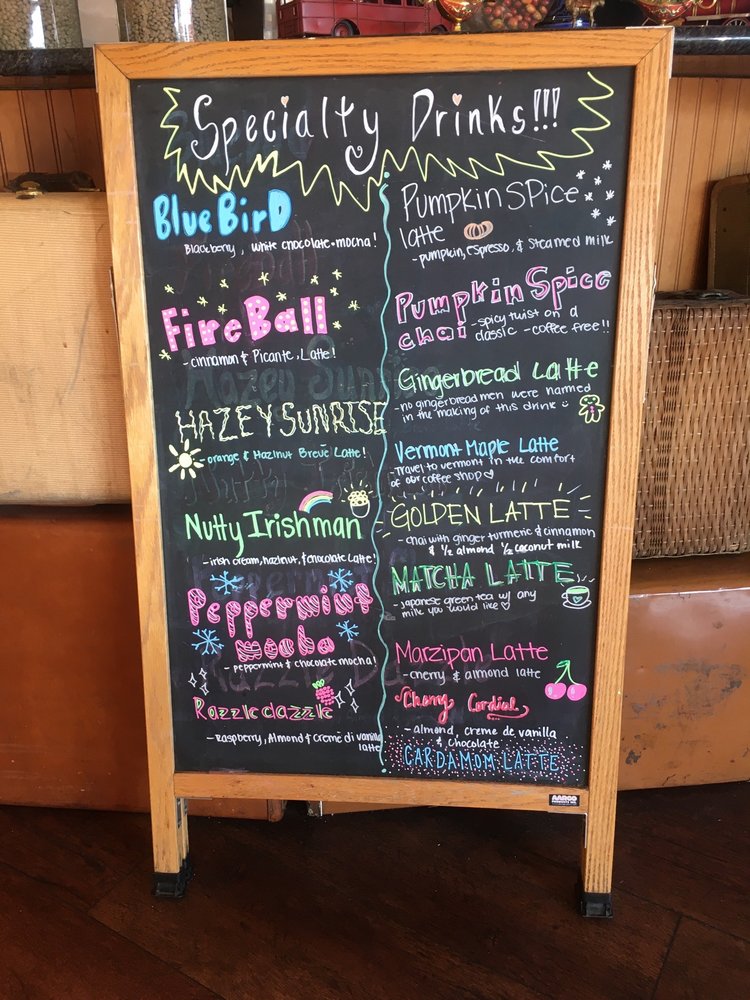 Specialty Drinks!!!
Blue BirD
Blackberry, white chocolate mocha!
Fire Ball
- cinnamon & Picante, Latte!
HAZEY SUNRISE
- orange & Hazlnut Brevé Latte!
Nutty Irishman
- irish cream, hazlnut, & chocolate Latte!
Peppermint
mocha
- peppermint & chocolate mocha!
Razzle dazzle
- Raspberry, Almond & Creme di vanilla
latte
Pumpkin SPice
latte
- pumpkin, Espresso, & Steamed milk
Pumpkin Spice
chai - spicy twist on a
classic - coffee free!!
Gingerbread Latte
- no gingerbread men were harmed
in the making of this drink
Vermont Maple Latte
- Travel to vermont in the comfort
of our coffee shop
GOLDEN LATTE
- chai with ginger turmeric & cinnamon
& 1/2 almond 1/2 coconut milk
MATCHA LATTE
- Japanese green tea w/ any
milk you would like
Marzipan Latte
- cherry & almond latte
Cherry Cordial
- almond, creme de vanilla
& chocolate
CARDAMOM LATTE
AARCO